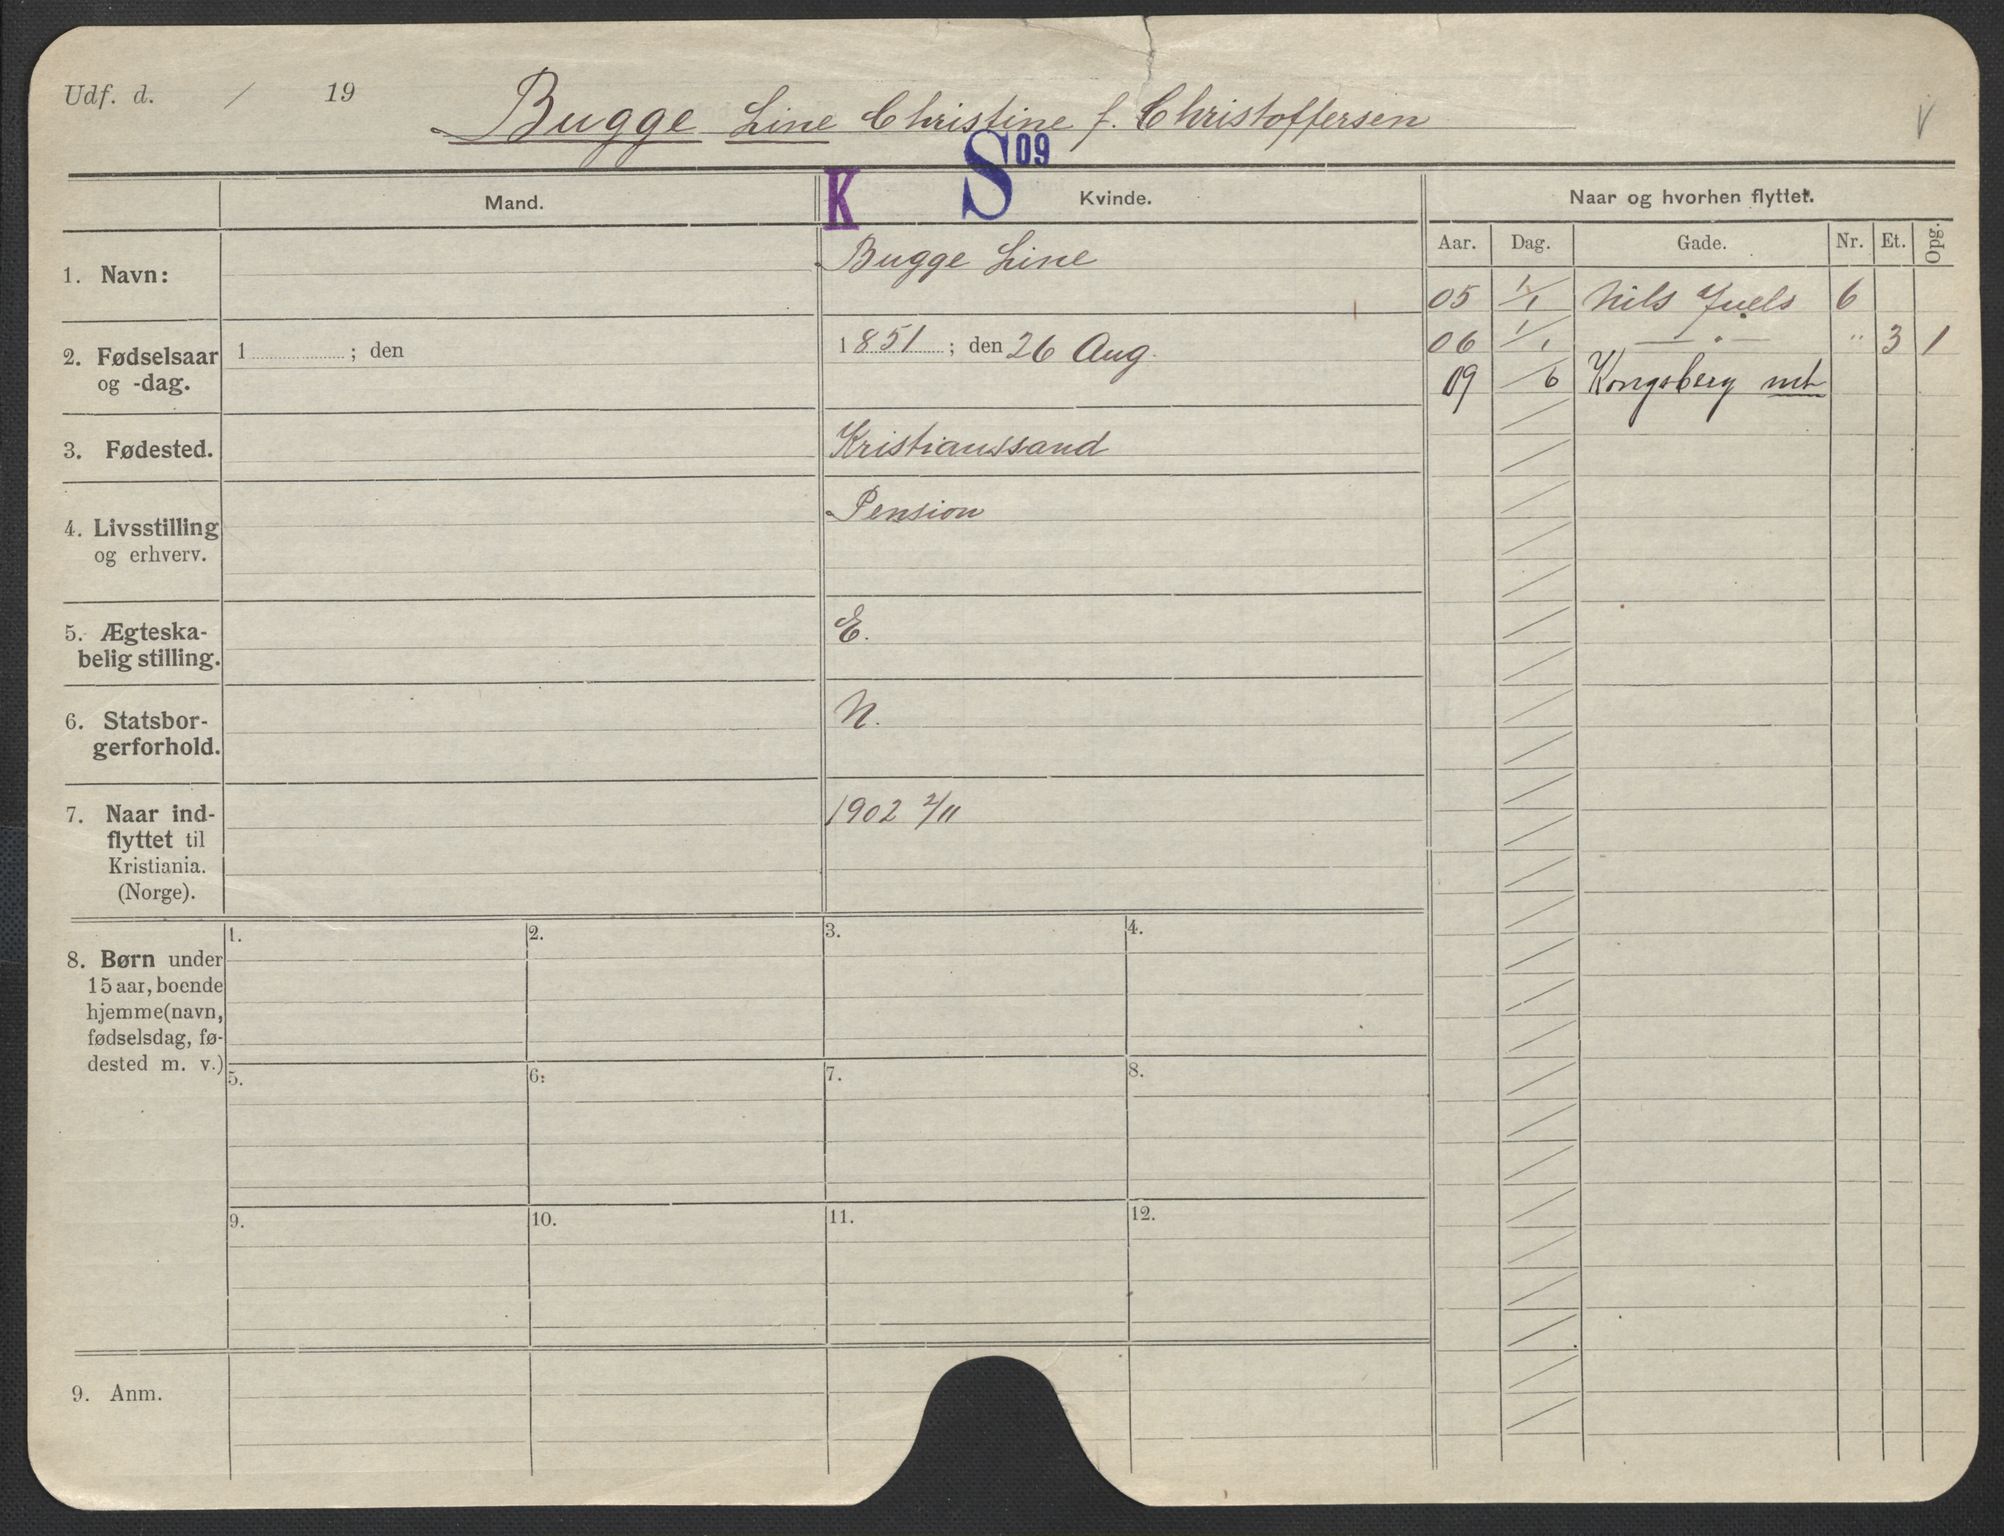 Udf. d. / 19
Bugge Line Christine f. Christoffersen
V
K S 09
Mand.
Kvinde.
Naar og hvorhen flyttet.
Aar. Dag. Gade. Nr. Et. Opg.
1. Navn:
Bugge Line
05 1/1 Nils Juels 6
06 1/1 — " — " 3 1
09 /6 Kongsberg
2. Fødselsaar
og -dag.
1 ; den
1851 ; den 26 Aug.
3. Fødested.
Kristianssand
4. Livsstilling
og erhverv.
Pension
5. Ægteska-
belig stilling.
E.
6. Statsbor-
gerforhold.
N.
7. Naar ind-
flyttet til
Kristiania.
(Norge).
1902 2/11
8. Børn under
15 aar, boende
hjemme (navn,
fødselsdag, fø-
dested m. v.)
1. 2. 3. 4.
5. 6. 7. 8.
9. 10. 11. 12.
9. Anm.